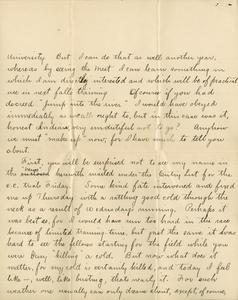 University. But I can do that as well another year,
whereas by seeing the meet I can learn something in
which I am directly interested and which will be of practical
use in next fall's training. Of course if you had
decreed "jump into the river" I would have obeyed
immediately as we all ought to, but in this case was it,
honest Indian, very undutiful not to go? Anyhow
we must "make up" now, for I have much to tell you
about.
First, you will be surprised not to see my name in
the News herewith mailed under the Entry list for the
c.c. trial Friday. Some kind fate intervened and fixed
me up Thursday with a rattling good cold through the
week as a result of 10 days running. Perhaps it
was best so, for I would have run too hard in the race
because of limited training time, but just the same it was
hard to see the fellows starting for the field while you
were busy killing a cold. But now what does it
matter, for my cold is certainly killed, and today I feel
like, well, like nothing, that's nearly it. For such
weather one usually can only dream about, except of course,